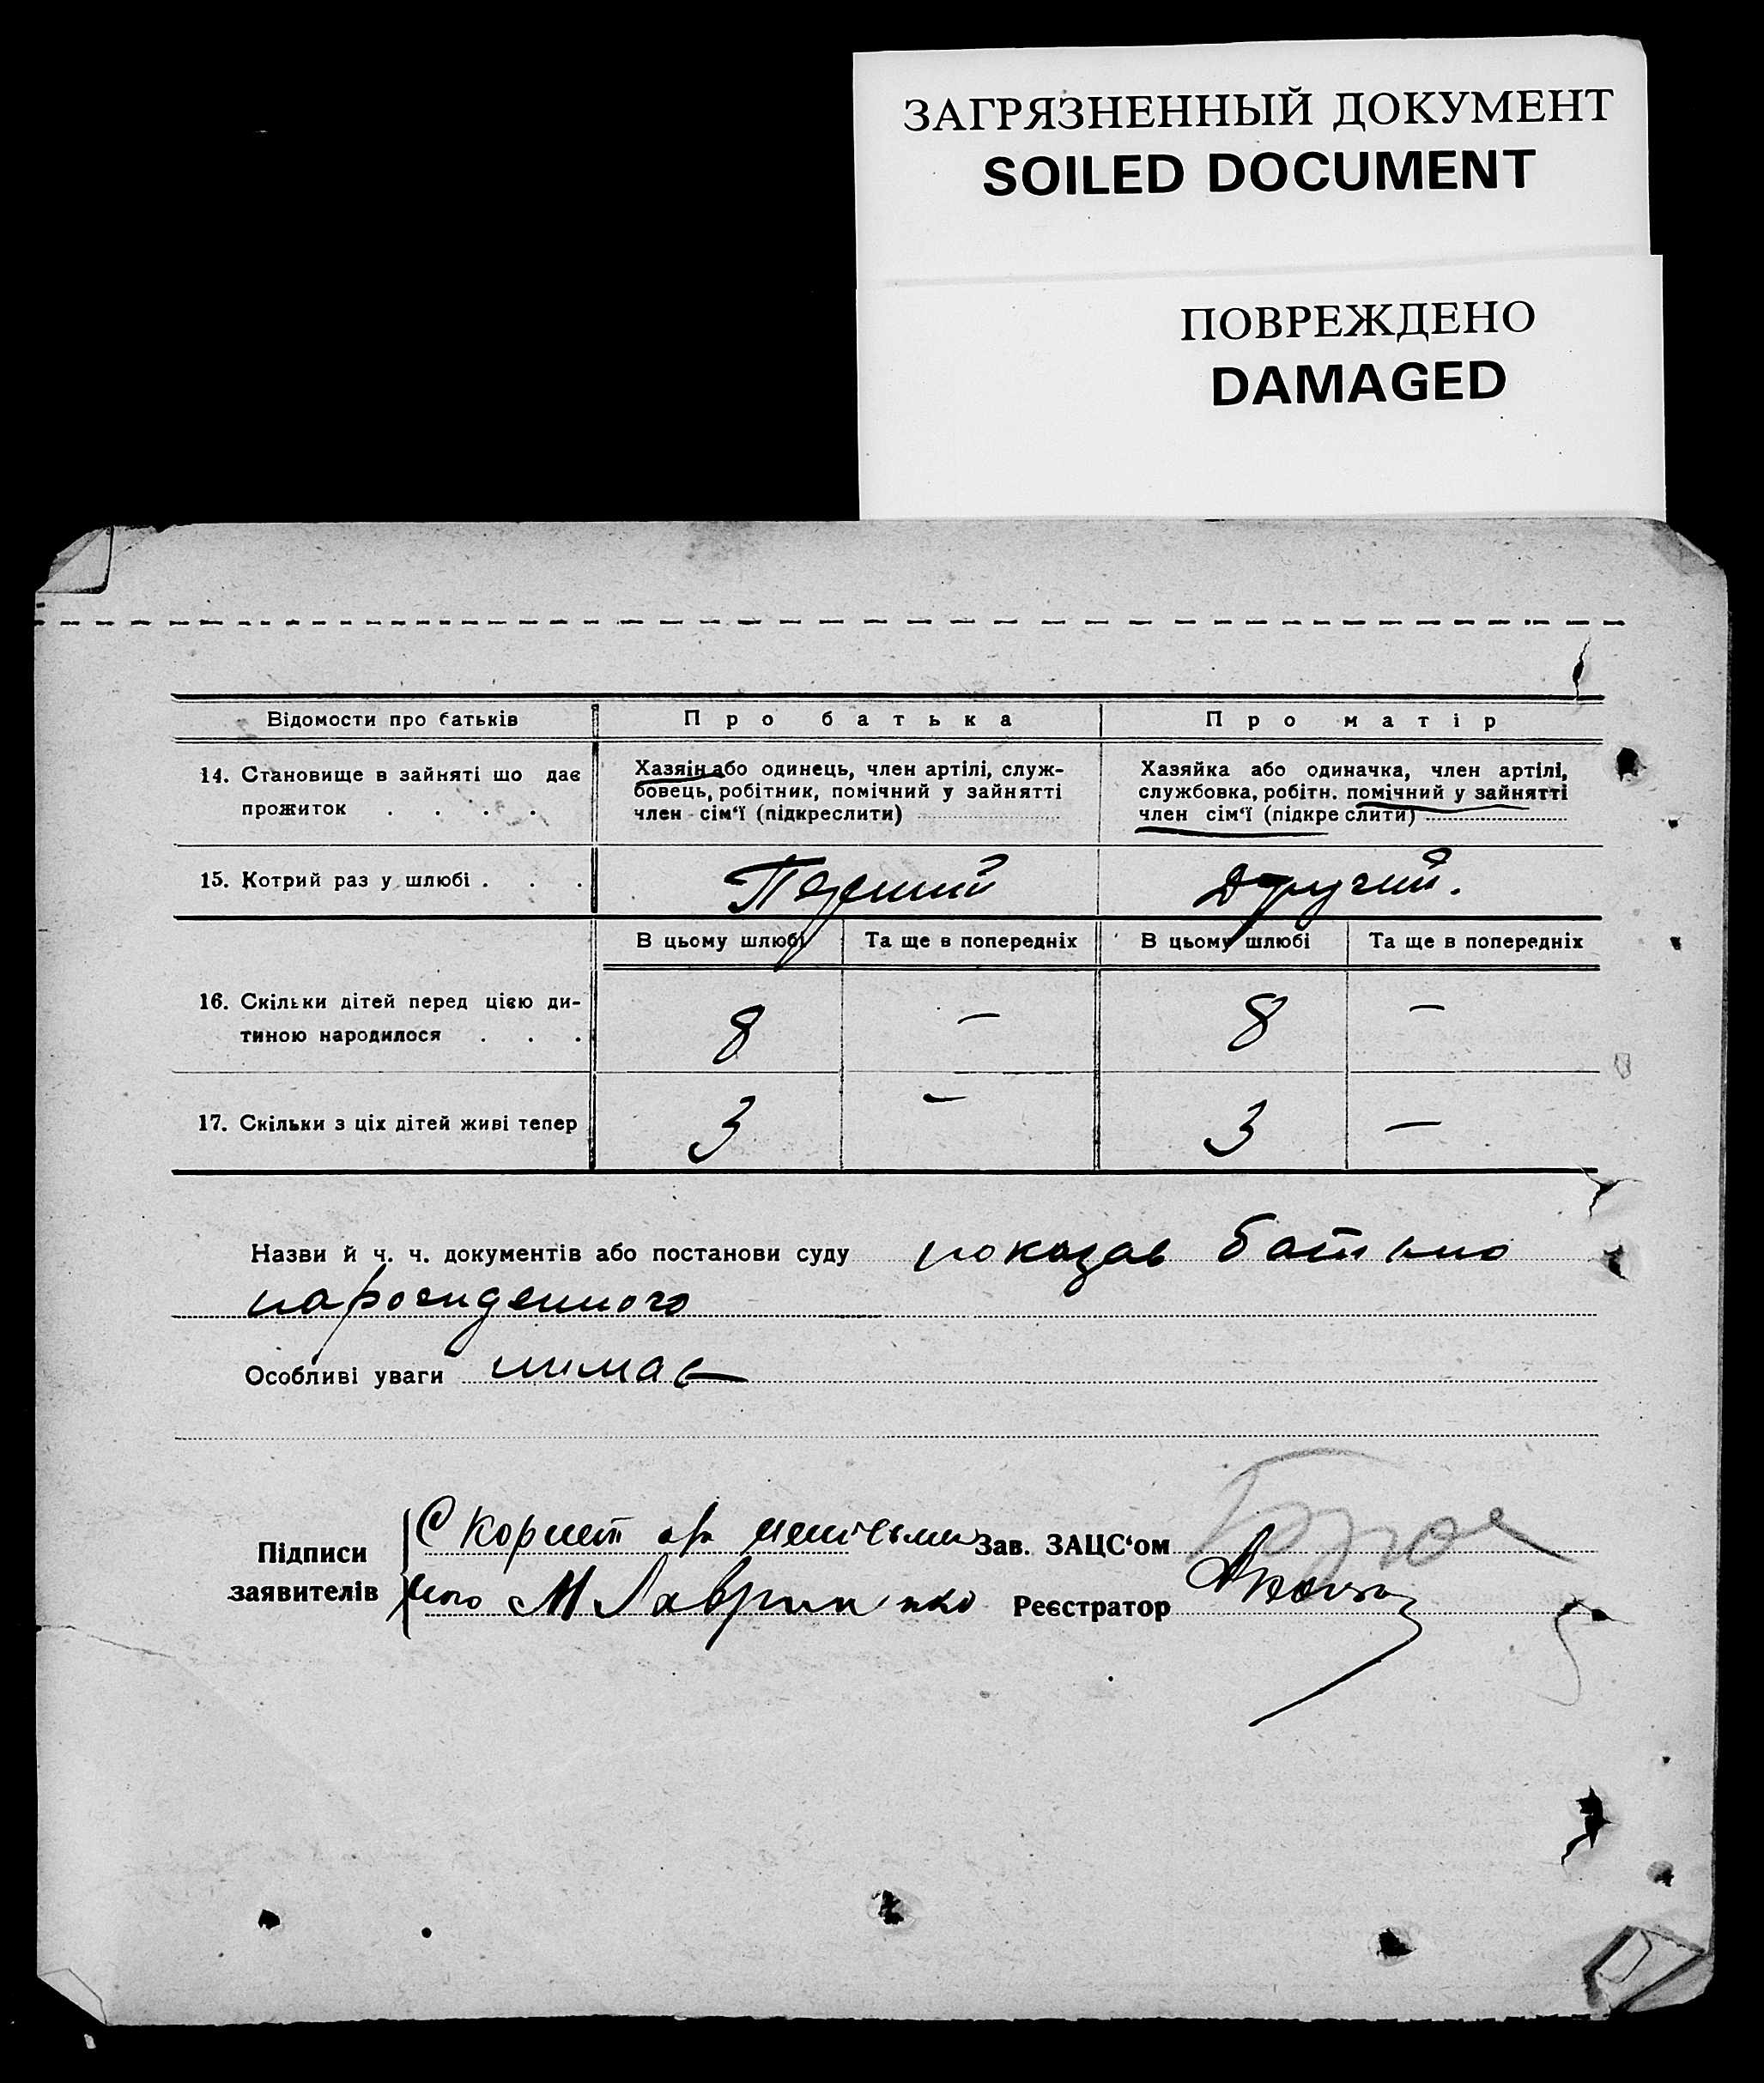 ЗАГРЯЗНЕННЫЙ ДОКУМЕНТ
SOILED DOCUMENT
ПОВРЕЖДЕНО
DAMAGED
Відомости про батьків
Про батька
Про матір
14. Становище в зайняті що дає
прожиток . . . .
Хазяін або одинець, член артілі, служ-
бовець, робітник, помічний у зайнятті
член сім‘ї (підкреслити)
Хазяйка або одиначка, член артілі,
службовка, робітн. помічний у зайнятті
член сім‘ї (підкреслити)
15. Котрий раз у шлюбі . . .
Перший
Другий.
В цьому шлюбі
Та ще в попередніх
В цьому шлюбі
Та ще в попередніх
16. Скільки дітей перед цією ди-
тиною народилося . . .
8 — 8 —
17. Скільки з ціх дітей живі тепер
3 — 3 —
Назви й ч. ч. документів або постанови суду показав батько
нарожденного
Особливі уваги нимає
Підписи
заявителів
Зав. ЗАЦС‘ом
М Лаврин нко
Реєстратор